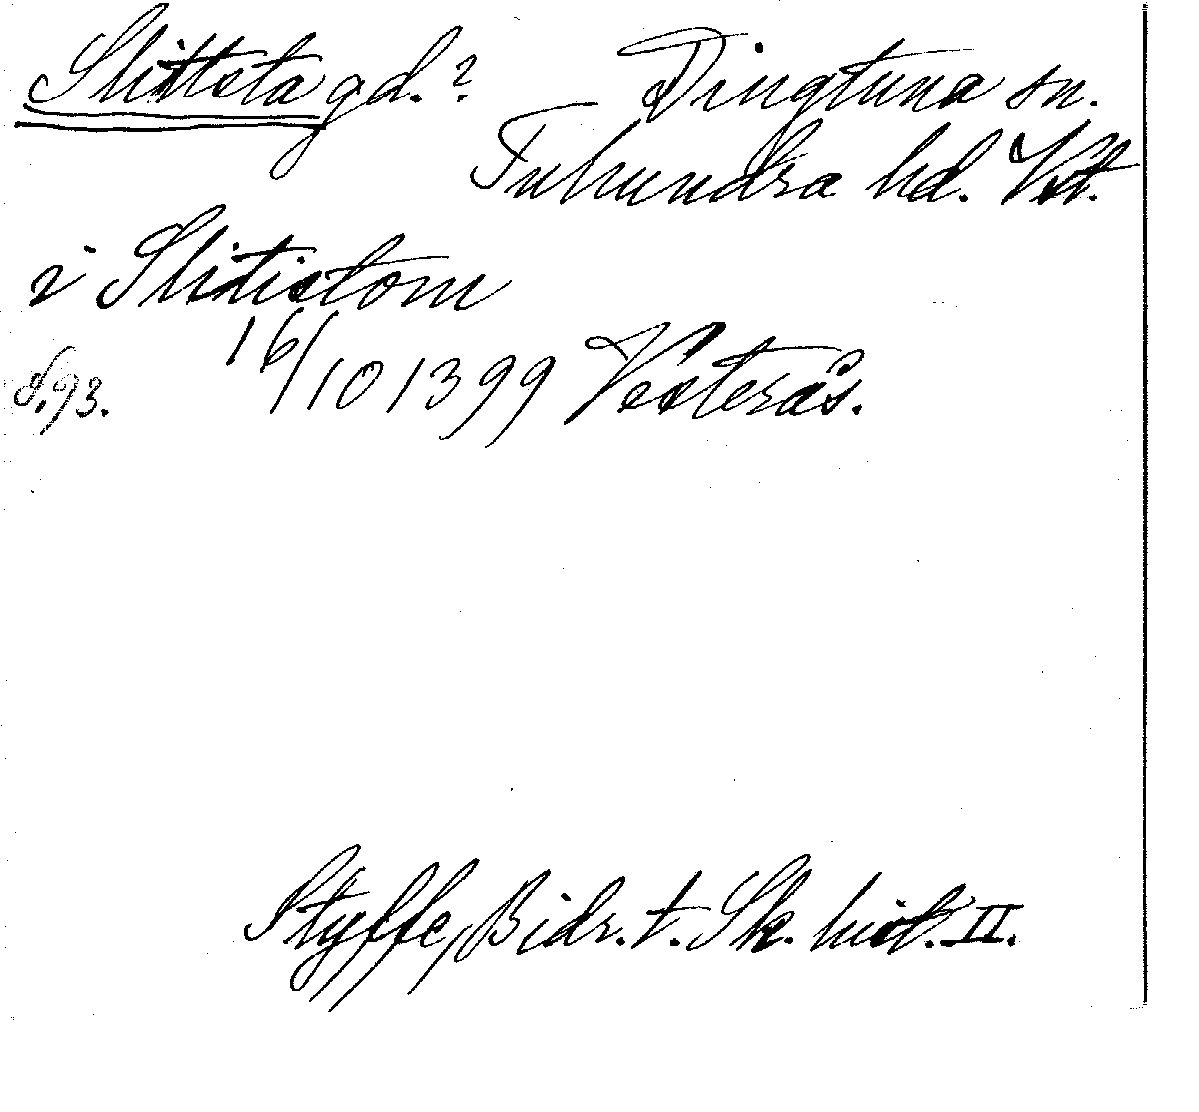 Slittsta gd.? Dingtuna sn.
Tuhundra hd. Vstm.
i Slitistom
16/10 1399 Vesterås.
s. 93.
Styffe, Bidr. t. Sk. hist. II.